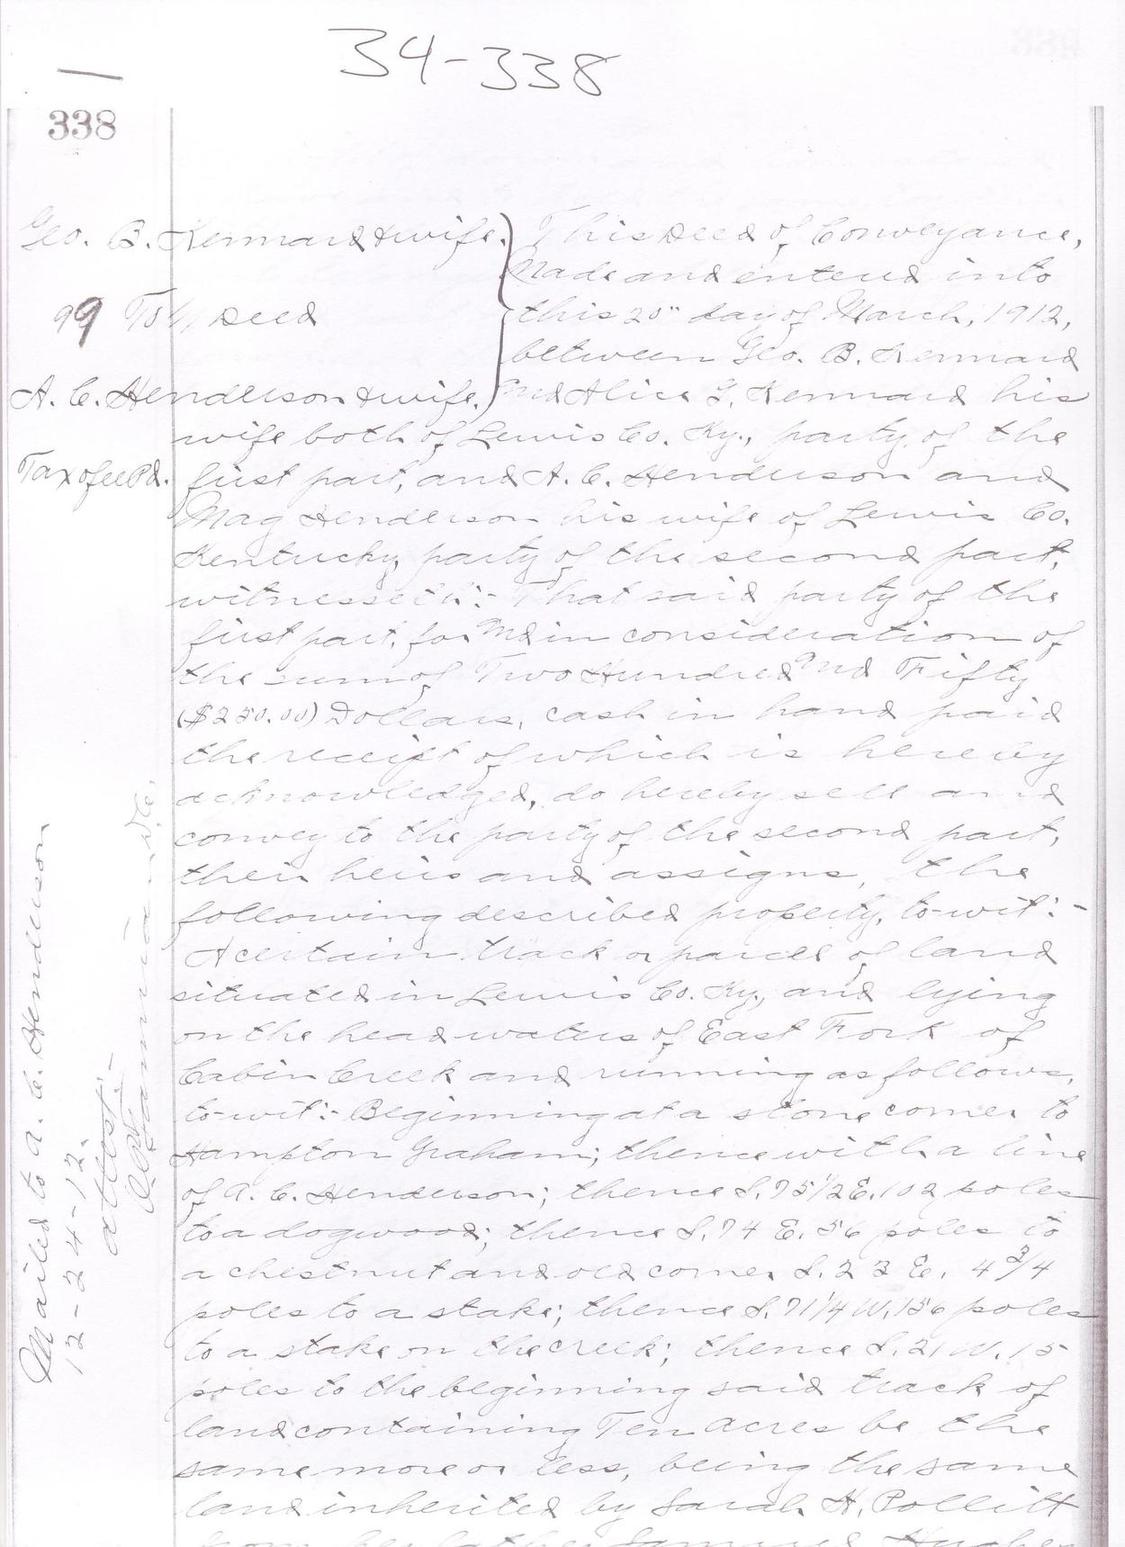 34-338
338
Geo. B. Kennard & wife.
99 To// Deed
A. C. Henderson & wife.
Tax & fee Pd.
This Deed of Conveyance,
made and entered into
this 20" day of March, 1912,
between Geo. B. Kennard
and Alice L. Kennard his
wife both of Lewis Co. Ky., party of the
first part, and A. C. Henderson and
Mag Henderson his wife of Lewis Co.
Kentucky party of the second part,
witnesseth:- That said party of the
first part, for and in consideration of
the sum of Two Hundred and Fifty
($250.00) Dollars, cash in hand paid
the receipt of which is hereby
acknowledged, do hereby sell and
convey to the party of the second part,
their heirs and assigns, the
following described property, to-wit:-
A certain track or parcel of land
situated in Lewis Co. Ky., and lying
on the head waters of East Fork of
Cabin Creek and running as follows,
to-wit:- Beginning at a stone corner to
Hampton Graham; thence with a line
of A. C. Henderson; thence S. 75 1/2 E. 102 poles
to a dogwood; thence S. 74 E. 56 poles to
a chestnut and old corner S. 23 E. 4 3/4
poles to a stake; thence S. 71 1/4 W. 156 poles
to a stake on the creek; thence S. 21 W. 15
poles to the beginning said track of
land containing Ten acres be the
same more or less, being the same
land inherited by Sarah H. Pollitt
from her father Samuel Hughes
Mailed to A. C. Henderson
12-24-12.
attest:-